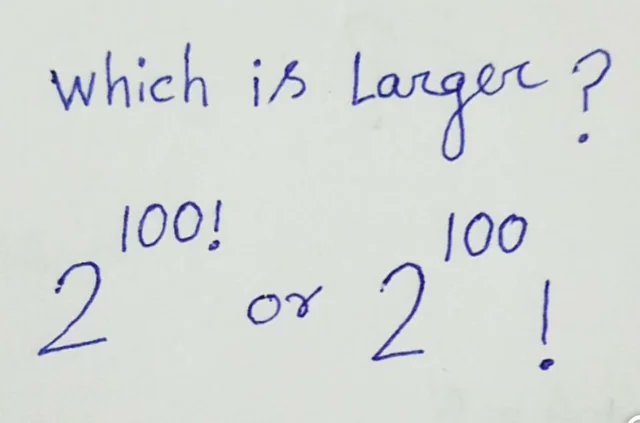 Which is Larger?
2^100! or 2^100 !